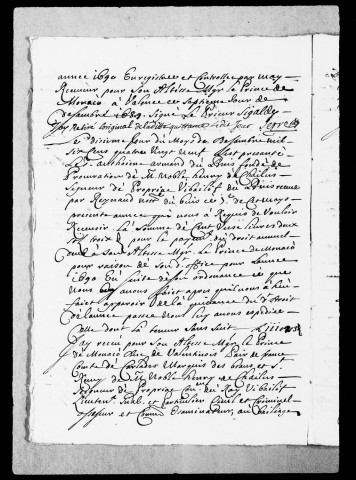 année 1690 Enregistrée et Controllee par may
Receveur pour Son Altesse Mgr le Prince de
Monaco a Valence ce septiesme Jour de
desambre 1689. Signé Le Prieur
Jay Retiré Loriginal de la ditte quittance
Le dixiesme Jour du Moys de Desambre mil
Six Cens quatre Vingt neuf Sest presanté
Le Sr anthoine armand du Buis fondé de
Procuration de Mr Noble henry de Chaslus
Signeur de Propriac Vibailif du Buis receue
par Reynaud Nore du buis ce de Ce Moys
presente annee qui nous a Requis de Vouloir
Recevoir la Somme de Cent livres deux
sols pour le payement du droit annuel
deub a Son Altesse Mgr le Prince de Monaco
pour raison de Sond office pour Lannee
1690 En Suitte de Son ordonnance ce que
Nous Luy avons fait apres quil nous a heu
faict apparoir de la quittance du droit
de Lannee passée Nous luy avons expediée
Celle dont la teneur Sans Suit
Jay receu pour Son Altesse Mgr le Prince
de Monaco Duc de Valentinois Pair de france
Comte de Carlades Marquis des baux et St
Remy de Mr Noble henry de Chaslus
Seigneur de Propriac Coner du Roy Vibailif
Lieutent Gnal et Particulier Civil et Criminel
assesseur et Comre Examinateur au bailiage